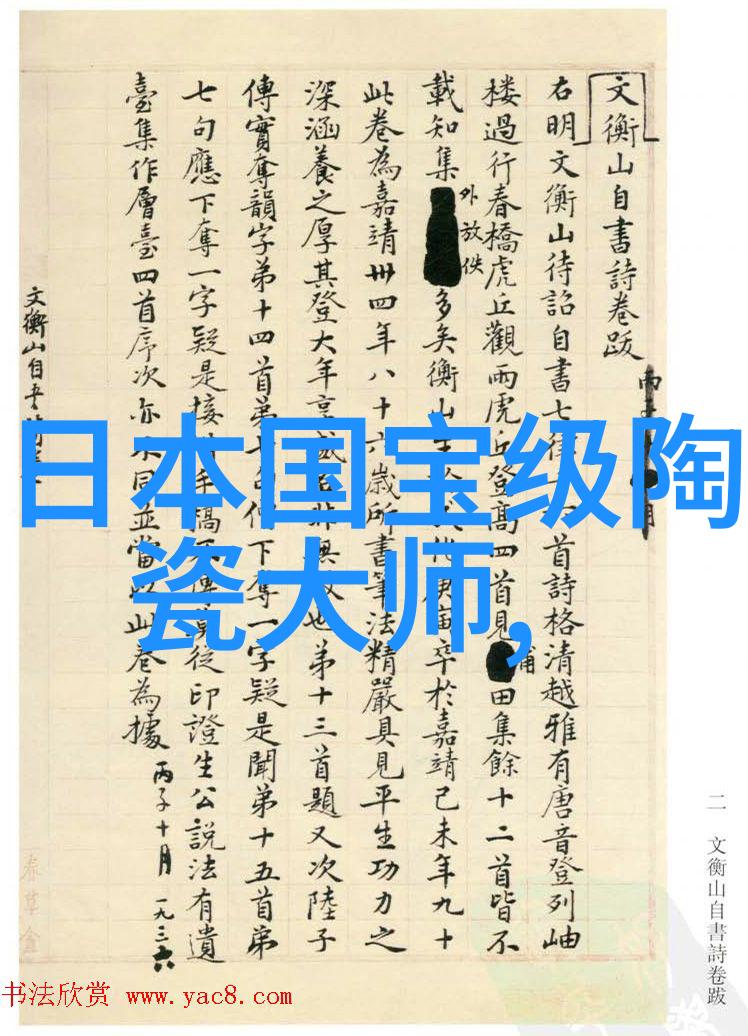 文衡山自書詩卷跋
右明文衡山待詔自書七律
首詩格清越雅有唐音登列岫
楼過行春橋虎丘觀雨虎丘登高四首見
甫田集餘十二首皆不
載知集外放佚多矣衡山
卒於嘉靖己未年九十
此卷為嘉靖卅四年八十六歲所書筆法精嚴具見平生功力之
深涵養之厚其登大年享
也弟十三首題又次陸子
傳實奪韻字弟十四首弟
句
下奪一字疑是聞弟十五首弟
七句應下奪一字疑是接
印證生公説法有遺
臺集作層臺四首序次亦不同並當以此卷為據
丙子十月 一九三六
文衡山自書詩卷
日本国宝级陶
瓷大师,
二 文衡山自書詩卷跋
书法欣赏 www.yac8.com